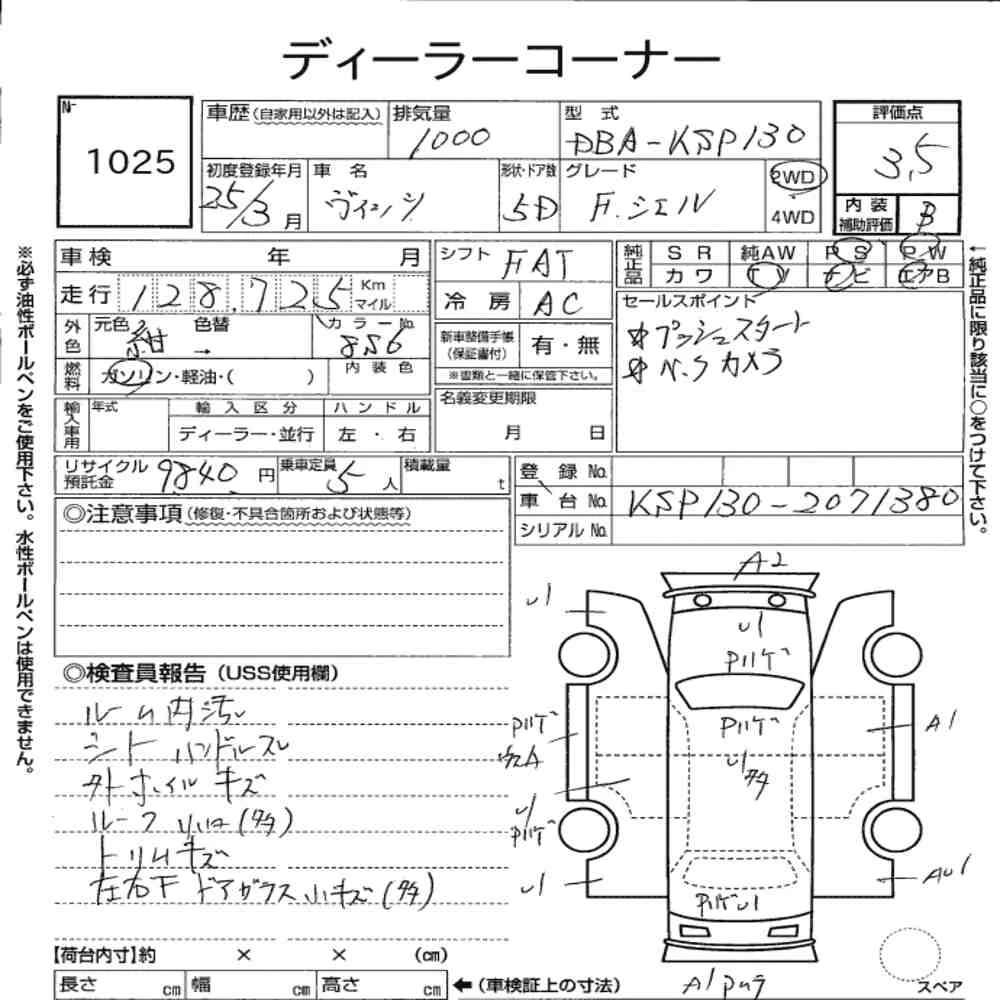 ディーラーコーナー
№
1025
車歴(自家用以外は記入)
排気量
1000
型 式
DBA-KSP130
評価点
3,5
初度登録年月
25/3月
車 名
ヴィッツ
形状・ドア数
5D
グレード
F.シエル
2WD
4WD
内 装
補助評価
B
車検 年 月
走行 128,725 Km
マイル
外色
元色 紺 色替 →
カラー№
8S6
燃料
ガソリン・軽油・( )
内 装 色
輸入車用
年式
輸 入 区 分
ハ ン ド ル
ディーラー・並行
左 ・ 右
シフト FAT
冷 房 AC
新車整備手帳
(保証書付)
有・無
※書類と一緒に保管下さい。
名義変更期限
月 日
純正品
S R 純AW P S P W
カ ワ T V ナ ビ エアB
セールスポイント
プッシュスタート
カメラ
リサイクル
預託金
9840 円
乗車定員
5 人
積載量
t
登 録 №
車 台 № KSP130-2071380
シリアル №
◎注意事項(修復・不具合箇所および状態等)
◎検査員報告(USS使用欄)
ルーム内汚れ
シート ハンドルスレ
外ホイルキズ
ルーフ
トリムキズ
左右下 ドアガラス小キズ(多)
A2
U1
U1
A1
U1
U1
A1
【荷台内寸】約 × × (cm)
長さ cm 幅 cm 高さ cm
←(車検証上の寸法)
スペア
※必ず油性ボールペンをご使用下さい。水性ボールペンは使用できません。
←純正品に限り該当に○をつけて下さい。